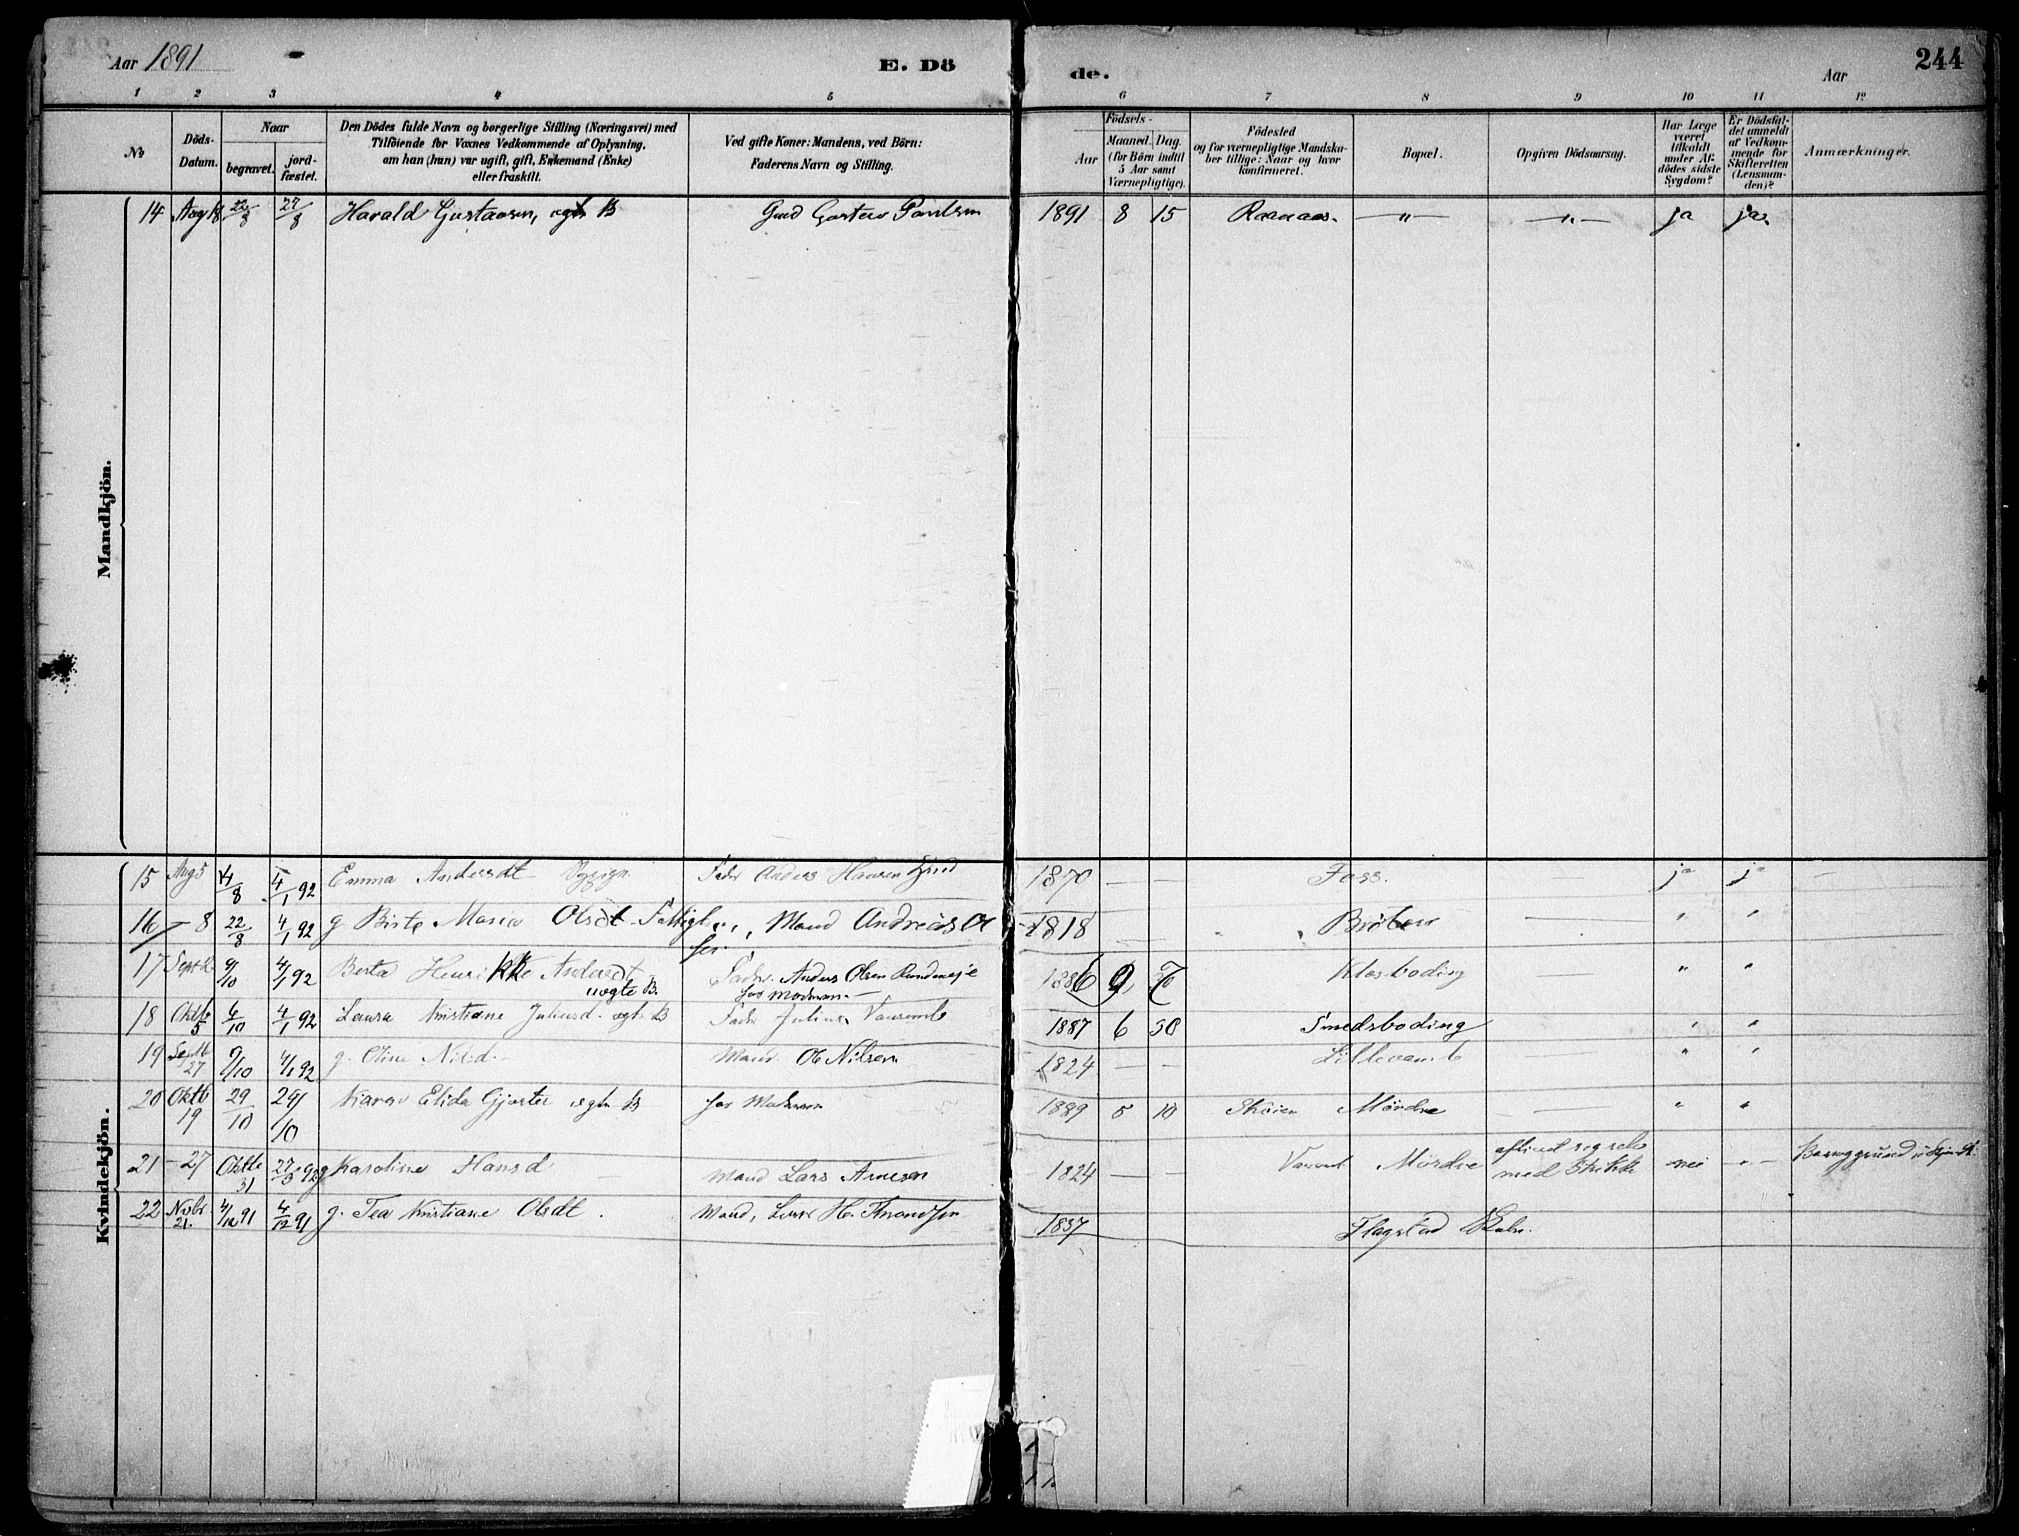 Aar 1891 E. Dö de. Aar 244
1 2 3 4 5 6 7 8 9 10 11 12
No
Döds-Datum.
Naar
begravet.
jord-fæstet.
Den Dödes fulde Navn og borgerlige Stilling (Næringsvei) med
Tilföiende for Voxnes Vedkommende af Oplysning,
om han (hun) var ugift, gift, Enkemand (Enke)
eller fraskilt.
Ved gifte Koner: Mandens, ved Börn:
Faderens Navn og Stilling.
Födsels-
Aar
Maaned. Dag.
(for Börn indtil
5 Aar samt
Værnepligtige).
Födested
og for værnepligtige Mandska-
ber tillige: Naar og hvor
konfirmeret.
Bopæl.
Opgiven Dödsaarsag.
Har Læge
været
tilkaldt
under Af-
dödes sidste
Sygdom?
Er Dödsfal-
det anmeldt
af Vedkom-
mende for
Skifteretten
(Lensman-
den)?
Anmærkninger.
Mandkjön.
14 Aug 18 22/8 27/8 Harald Gustavsen, ægte B Gmd Gustav Paulsen 1891 8 15 Raanaas. —"— —"— ja ja
Kvindekjön.
15 Aug 5 /8 4/1 92 Emma Andersdt Fader Anders Hansen 1870 — — Foss. ja ja
16 — 8 22/8 4/1 92 g Birte Marie Olsdt Mand Andreas 1818 — Bröten " "
17 Sept 9/10 4/1 92 Berta Henrikke Andersdt Fader Anders Olsen 1886 9 7 Klosboding " "
uægte B. hos Moderen —
18 Oktb 5 6/10 4/1 92 Laura Kristiane Juliusd. ægte B Fader Julius 1887 6 30 Smedsboding " "
19 Septb 27 9/10 4/1 92 g. Oline Nilsd. — Mand Ole Nilsen 1824 — — Lillevamb " "
20 Oktb 19 29/10 29/10 Karen Elida ægte B hos Moderen 1889 5 10 Skoien Mördre " "
21 — 27 Oktb 31 27/3 92 g Karoline Hansd Mand Lars Arnesen 1824 — Mördre aflivet sig selv
med Strikke nei
22 Novbr 21. 4/12 91 4/12 91 g. Tea Kristiane Olsdt. Mand, H. Amundsen 1837 Flagstad